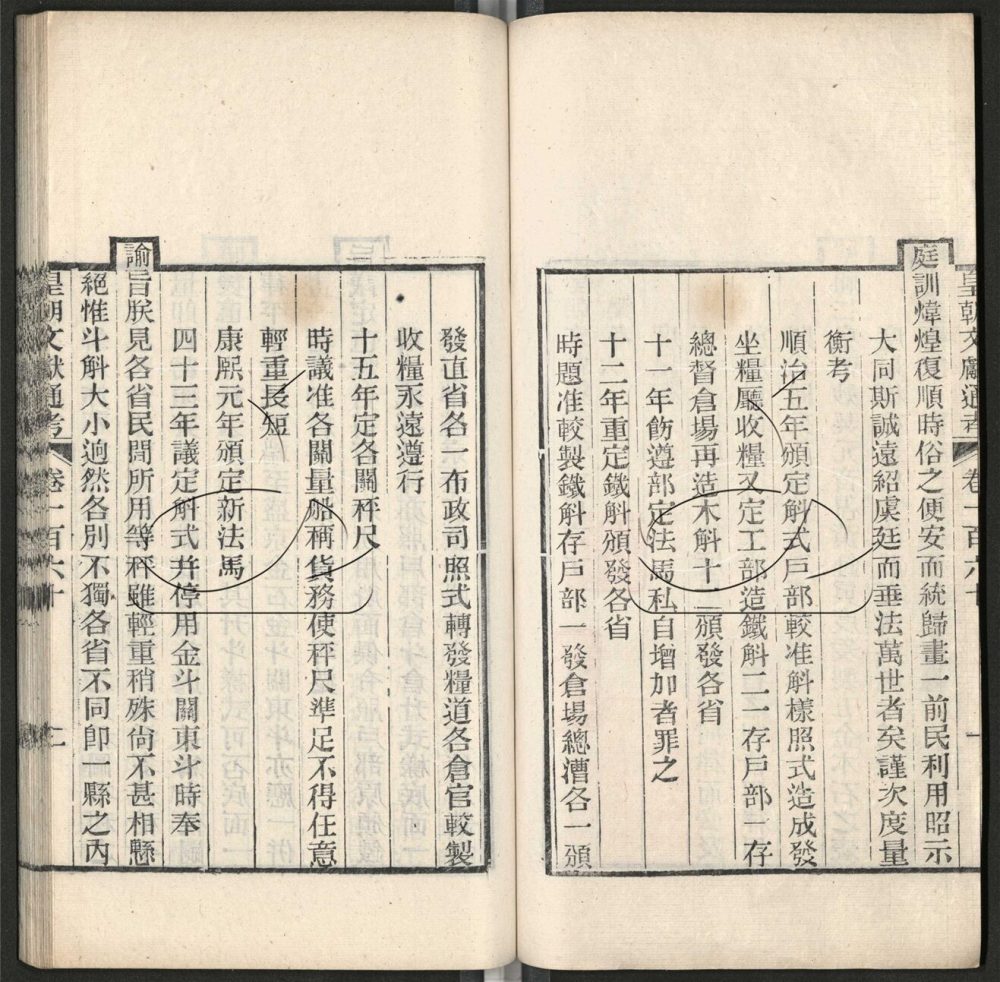 皇朝文獻通考 卷一百六十 一
庭訓煒煌復順時俗之便安而統歸畫一前民利用昭示
大同斯誠遠紹虞廷而垂法萬世者矣謹次度量
衡考
順治五年頒定斛式戸部較准斛樣照式造成發
坐糧廳收糧又定工部造鐵斛二一存戸部一存
總督倉場再造木斛十二頒發各省
十一年飭遵部定法馬私自增加者罪之
十二年重定鐵斛頒發各省
時題准較製鐵斛存戸部一發倉場總漕各一頒
發直省各一布政司照式轉發糧道各倉官較製
收糧永遠遵行
十五年定各關秤尺
時議准各關量船稱貨務使秤尺準足不得任意
輕重長短
康熙元年頒定新法馬
四十三年議定斛式幷停用金斗關東斗時奉
諭旨朕見各省民間所用等秤雖輕重稍殊尙不甚相懸
絕惟斗斛大小迥然各別不獨各省不同卽一縣之內
皇朝文獻通考 卷一百六十 二